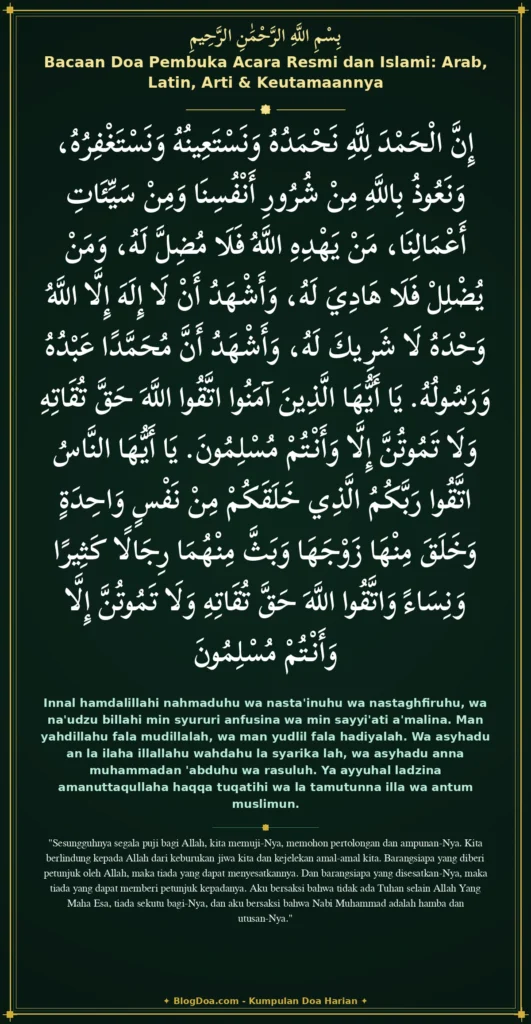 بِسْمِ اللَّهِ الرَّحْمَٰنِ الرَّحِيمِ
Bacaan Doa Pembuka Acara Resmi dan Islami: Arab,
Latin, Arti & Keutamaannya
إِنَّ الْحَمْدَ لِلَّهِ نَحْمَدُهُ وَنَسْتَعِينُهُ وَنَسْتَغْفِرُهُ،
وَنَعُوذُ بِاللَّهِ مِنْ شُرُورِ أَنْفُسِنَا وَمِنْ سَيِّئَاتِ
أَعْمَالِنَا، مَنْ يَهْدِهِ اللَّهُ فَلَا مُضِلَّ لَهُ، وَمَنْ
يُضْلِلْ فَلَا هَادِيَ لَهُ، وَأَشْهَدُ أَنْ لَا إِلَهَ إِلَّا اللَّهُ
وَحْدَهُ لَا شَرِيكَ لَهُ، وَأَشْهَدُ أَنَّ مُحَمَّدًا عَبْدُهُ
وَرَسُولُهُ. يَا أَيُّهَا الَّذِينَ آمَنُوا اتَّقُوا اللَّهَ حَقَّ تُقَاتِهِ
وَلَا تَمُوتُنَّ إِلَّا وَأَنْتُمْ مُسْلِمُونَ. يَا أَيُّهَا النَّاسُ
اتَّقُوا رَبَّكُمُ الَّذِي خَلَقَكُمْ مِنْ نَفْسٍ وَاحِدَةٍ
وَخَلَقَ مِنْهَا زَوْجَهَا وَبَثَّ مِنْهُمَا رِجَالًا كَثِيرًا
وَنِسَاءً وَاتَّقُوا اللَّهَ حَقَّ تُقَاتِهِ وَلَا تَمُوتُنَّ إِلَّا
وَأَنْتُمْ مُسْلِمُونَ
Innal hamdalillahi nahmaduhu wa nasta'inuhu wa nastaghfiruhu, wa
na'udzu billahi min syururi anfusina wa min sayyi'ati a'malina. Man
yahdillahu fala mudillalah, wa man yudlil fala hadiyalah. Wa asyhadu
an la ilaha illallahu wahdahu la syarika lah, wa asyhadu anna
muhammadan 'abduhu wa rasuluh. Ya ayyuhal ladzina
amanuttaqullaha haqqa tuqatihi wa la tamutunna illa wa antum
muslimun.
"Sesungguhnya segala puji bagi Allah, kita memuji-Nya, memohon pertolongan dan ampunan-Nya. Kita
berlindung kepada Allah dari keburukan jiwa kita dan kejelekan amal-amal kita. Barangsiapa yang diberi
petunjuk oleh Allah, maka tiada yang dapat menyesatkannya. Dan barangsiapa yang disesatkan-Nya, maka
tiada yang dapat memberi petunjuk kepadanya. Aku bersaksi bahwa tidak ada Tuhan selain Allah Yang
Maha Esa, tiada sekutu bagi-Nya, dan aku bersaksi bahwa Nabi Muhammad adalah hamba dan
utusan-Nya."
✦ BlogDoa.com - Kumpulan Doa Harian ✦